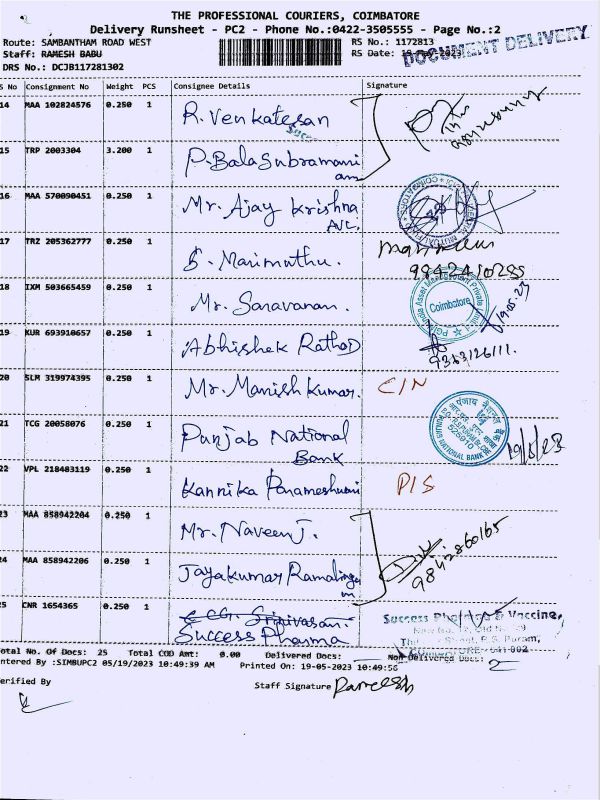 THE PROFESSIONAL COURIERS, COIMBATORE
Delivery Runsheet - PC2 - Phone No.:0422-3505555 - Page No.:2
Route: SAMBANTHAM ROAD WEST RS No.: 1172813
Staff: RAMESH BABU RS Date: 19-May-2023
DOCUMENT DELIVERY
DRS No.: DCJB117281302
S No Consignment No Weight PCS Consignee Details Signature
14 MAA 102824576 0.250 1 R. Venkatesan
15 TRP 2003304 3.200 1 P. Balasubramani
an
16 MAA 570090451 0.250 1 Mr. Ajay Krishna
A/C.
17 TRZ 205362777 0.250 1 S. Marimuthu.
9842410285
18 IXM 503665459 0.250 1 Mr. Saravanan.
Coimbatore
19.05.23
19 KUR 693910657 0.250 1 Abhishek Rathod
9363126111.
20 SLM 319974395 0.250 1 Mr. Manish Kumar. C/N
21 TCG 20058076 0.250 1 Punjab National
Bank
पंजाब नैशनल
PUNJAB NATIONAL BANK
19/5/23
22 VPL 218483119 0.250 1 Kannika Parameshwari P/S
23 MAA 858942204 0.250 1 Mr. Naveen J.
9842860165
24 MAA 858942206 0.250 1 Jayakumar Ramalingam
25 CNR 1654365 0.250 1 Srinivasan.
Success Pharma
Success Pharma & Vaccine,
R.S. Puram,
COIMBATORE - 641 002
otal No. Of Docs: 25 Total COD Amt: 0.00 Delivered Docs: Non Delivered Docs: 2
ntered By :SIMBUPC2 05/19/2023 10:49:39 AM Printed On: 19-05-2023 10:49:56
erified By Staff Signature Rameesh